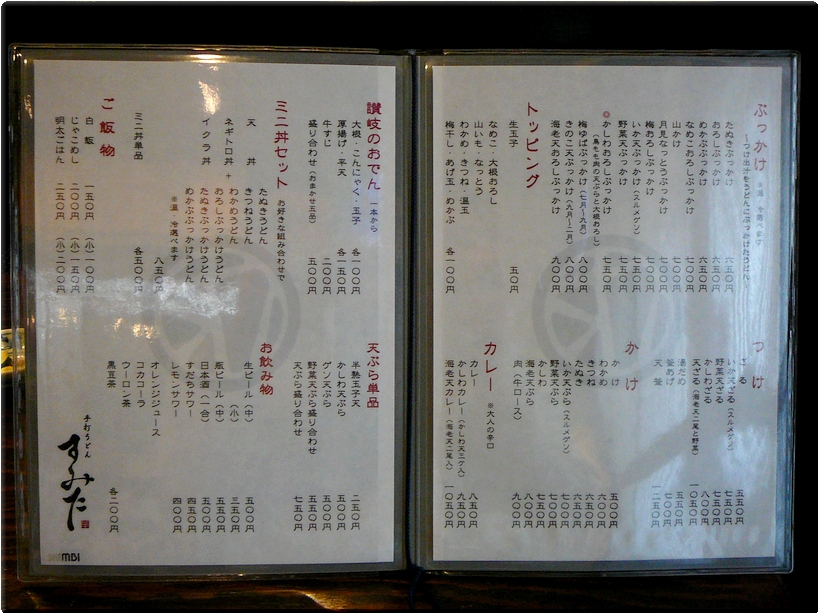 ぶっかけ ※温 冷選べます
〜つけ出汁をうどんにぶっかけたうどん
たぬきぶっかけ 六五〇円
おろしぶっかけ 六五〇円
めかぶぶっかけ 六五〇円
なめこおろしぶっかけ 七〇〇円
山かけ 七〇〇円
月見なっとうぶっかけ 七〇〇円
梅おろしぶっかけ 七〇〇円
いか天ぶっかけ(スルメゲソ) 七五〇円
野菜天ぶっかけ 七五〇円
◎かしわおろしぶっかけ 七五〇円
(鳥もも肉の天ぷらと大根おろし)
梅ゆばぶっかけ(七月〜九月) 八〇〇円
きのこ天ぶっかけ(九月〜二月) 八〇〇円
海老天おろしぶっかけ 九〇〇円
トッピング
生玉子 五〇円
なめこ・大根おろし
山いも・なっとう
わかめ・きつね・温玉
梅干し・あげ玉・めかぶ 各一〇〇円
つけ
ざる 五五〇円
いか天ざる(スルメゲソ) 七五〇円
野菜天ざる 七五〇円
かしわざる 八〇〇円
天ざる(海老天二尾と野菜) 一〇五〇円
湯だめ 五五〇円
釜あげ
天釜 一二五〇円
かけ
かけ 五〇〇円
わかめ 六〇〇円
きつね 六五〇円
たぬき 六五〇円
いか天ぷら(スルメゲソ) 七〇〇円
野菜天ぷら 七〇〇円
かしわ 七五〇円
海老天ぷら 八〇〇円
肉(牛ロース) 九〇〇円
カレー ※大人の辛口
カレー 八五〇円
かしわカレー(かしわ天三ケ入) 九五〇円
海老天カレー(海老天二尾入) 一〇五〇円
讃岐のおでん 一本から
大根・こんにゃく・玉子 各一〇〇円
厚揚げ・平天 各一五〇円
牛すじ 二〇〇円
盛り合わせ(おまかせ五品) 五〇〇円
ミニ丼セット お好きな組み合わせで
天丼
ネギトロ丼 +
イクラ丼
たぬきうどん
きつねうどん
わかめうどん
おろしぶっかけうどん
たぬきぶっかけうどん
めかぶぶっかけうどん
※温 冷選べます
八五〇円
ミニ丼単品 各五〇〇円
ご飯物
白飯 一五〇円 (小)一〇〇円
じゃこめし 二〇〇円 (小)一五〇円
明太ごはん 二五〇円 (小)二〇〇円
天ぷら単品
半熟玉子天 二五〇円
かしわ天ぷら 五〇〇円
ゲソ天ぷら 五〇〇円
野菜天ぷら盛り合わせ 五五〇円
天ぷら盛り合わせ 七五〇円
お飲み物
生ビール(中) 五〇〇円
(小) 三五〇円
瓶ビール(中) 五五〇円
日本酒(一合) 五〇〇円
すだちサワー 四五〇円
レモンサワー 四〇〇円
オレンジジュース
コカコーラ
ウーロン茶
黒豆茶 各二〇〇円
手打うどん
すみた
MBI